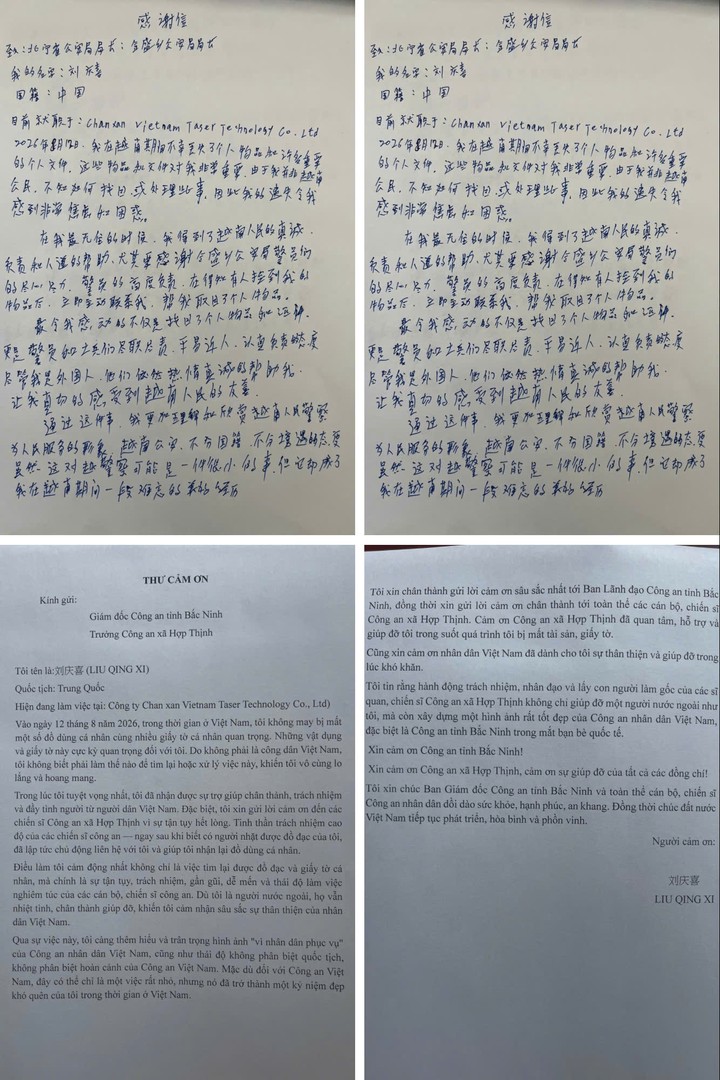 感谢信
致:北宁省公安局局长:合盛乡公安局局长
我的名字:刘庆喜
国籍:中国
目前就职于:Chan xan Vietnam Taser Technology Co., Ltd
2026年8月12日.我在越南期间不幸丢失了个人物品和许多重要
的个人文件.这些物品和文件对我非常重要.由于我并非越南
公民.不知如何找回或处理此事,因此我的遗失令我
感到非常焦虑和困惑。
在我最无合的时候.我得到了越南人民的真诚.
负责和人道的帮助.尤其要感谢合盛乡公安局警员们
的尽心尽力.警员的高度负责.在得知有人捡到我的
物品后.立即主动联系我.帮我取回了个人物品。
最令我感动的不仅是找回了个人物品和证件
更是警员和士兵们尽职尽责.平易近人.认真负责的态度
尽管我是外国人.他们依然热情真诚的帮助我.
让我真切的感受到越南人民的友善.
通过这件事.我更加理解和欣赏越南人民警察
为人民服务的形象.越南公安.不分国籍.不分境遇的态度
虽然这对越警察可能是一件很小的事.但它却成了
我在越南期间一段难忘的美好经历
感谢信
致:北宁省公安局局长:合盛乡公安局局长
我的名字:刘庆喜
国籍:中国
目前就职于:Chan xan Vietnam Taser Technology Co., Ltd
2026年8月12日.我在越南期间不幸丢失了个人物品和许多重要
的个人文件.这些物品和文件对我非常重要.由于我并非越南
公民.不知如何找回或处理此事,因此我的遗失令我
感到非常焦虑和困惑。
在我最无合的时候.我得到了越南人民的真诚.
负责和人道的帮助.尤其要感谢合盛乡公安局警员们
的尽心尽力.警员的高度负责.在得知有人捡到我的
物品后.立即主动联系我.帮我取回了个人物品。
最令我感动的不仅是找回了个人物品和证件
更是警员和士兵们尽职尽责.平易近人.认真负责的态度
尽管我是外国人.他们依然热情真诚的帮助我.
让我真切的感受到越南人民的友善.
通过这件事.我更加理解和欣赏越南人民警察
为人民服务的形象.越南公安.不分国籍.不分境遇的态度
虽然这对越警察可能是一件很小的事.但它却成了
我在越南期间一段难忘的美好经历
THƯ CẢM ƠN
Kính gửi:
Giám đốc Công an tỉnh Bắc Ninh
Trưởng Công an xã Hợp Thịnh
Tôi tên là:刘庆喜 (LIU QING XI)
Quốc tịch: Trung Quốc
Hiện đang làm việc tại: Công ty Chan xan Vietnam Taser Technology Co., Ltd)
Vào ngày 12 tháng 8 năm 2026, trong thời gian ở Việt Nam, tôi không may bị mất
một số đồ dùng cá nhân cùng nhiều giấy tờ cá nhân quan trọng. Những vật dụng
và giấy tờ này cực kỳ quan trọng đối với tôi. Do không phải là công dân Việt Nam,
tôi không biết phải làm thế nào để tìm lại hoặc xử lý việc này, khiến tôi vô cùng lo
lắng và hoang mang.
Trong lúc tôi tuyệt vọng nhất, tôi đã nhận được sự trợ giúp chân thành, trách nhiệm
và đầy tình người từ người dân Việt Nam. Đặc biệt, tôi xin gửi lời cảm ơn đến các
chiến sĩ Công an xã Hợp Thịnh vì sự tận tụy hết lòng. Tinh thần trách nhiệm cao
độ của các chiến sĩ công an — ngay sau khi biết có người nhặt được đồ đạc của tôi,
đã lập tức chủ động liên hệ với tôi và giúp tôi nhận lại đồ dùng cá nhân.
Điều làm tôi cảm động nhất không chỉ là việc tìm lại được đồ đạc và giấy tờ cá
nhân, mà chính là sự tận tụy, trách nhiệm, gần gũi, dễ mến và thái độ làm việc
nghiêm túc của các cán bộ, chiến sĩ công an. Dù tôi là người nước ngoài, họ vẫn
nhiệt tình, chân thành giúp đỡ, khiến tôi cảm nhận sâu sắc sự thân thiện của nhân
dân Việt Nam.
Qua sự việc này, tôi càng thêm hiểu và trân trọng hình ảnh "vì nhân dân phục vụ"
của Công an nhân dân Việt Nam, cũng như thái độ không phân biệt quốc tịch,
không phân biệt hoàn cảnh của Công an Việt Nam. Mặc dù đối với Công an Việt
Nam, đây có thể chỉ là một việc rất nhỏ, nhưng nó đã trở thành một kỷ niệm đẹp
khó quên của tôi trong thời gian ở Việt Nam.
Tôi xin chân thành gửi lời cảm ơn sâu sắc nhất tới Ban Lãnh đạo Công an tỉnh Bắc
Ninh, đồng thời xin gửi lời cảm ơn chân thành tới toàn thể các cán bộ, chiến sĩ
Công an xã Hợp Thịnh. Cảm ơn Công an xã Hợp Thịnh đã quan tâm, hỗ trợ và
giúp đỡ tôi trong suốt quá trình tôi bị mất tài sản, giấy tờ.
Cũng xin cảm ơn nhân dân Việt Nam đã dành cho tôi sự thân thiện và giúp đỡ trong
lúc khó khăn.
Tôi tin rằng hành động trách nhiệm, nhân đạo và lấy con người làm gốc của các sĩ
quan, chiến sĩ Công an xã Hợp Thịnh không chỉ giúp đỡ một người nước ngoài như
tôi, mà còn xây dựng một hình ảnh rất tốt đẹp của Công an nhân dân Việt Nam,
đặc biệt là Công an tỉnh Bắc Ninh trong mắt bạn bè quốc tế.
Xin cảm ơn Công an tỉnh Bắc Ninh!
Xin cảm ơn Công an xã Hợp Thịnh, cảm ơn sự giúp đỡ của tất cả các đồng chí!
Tôi xin chúc Ban Giám đốc Công an tỉnh Bắc Ninh và toàn thể cán bộ, chiến sĩ
Công an nhân dân dồi dào sức khỏe, hạnh phúc, an khang. Đồng thời chúc đất nước
Việt Nam tiếp tục phát triển, hòa bình và phồn vinh.
Người cảm ơn:
刘庆喜
LIU QING XI